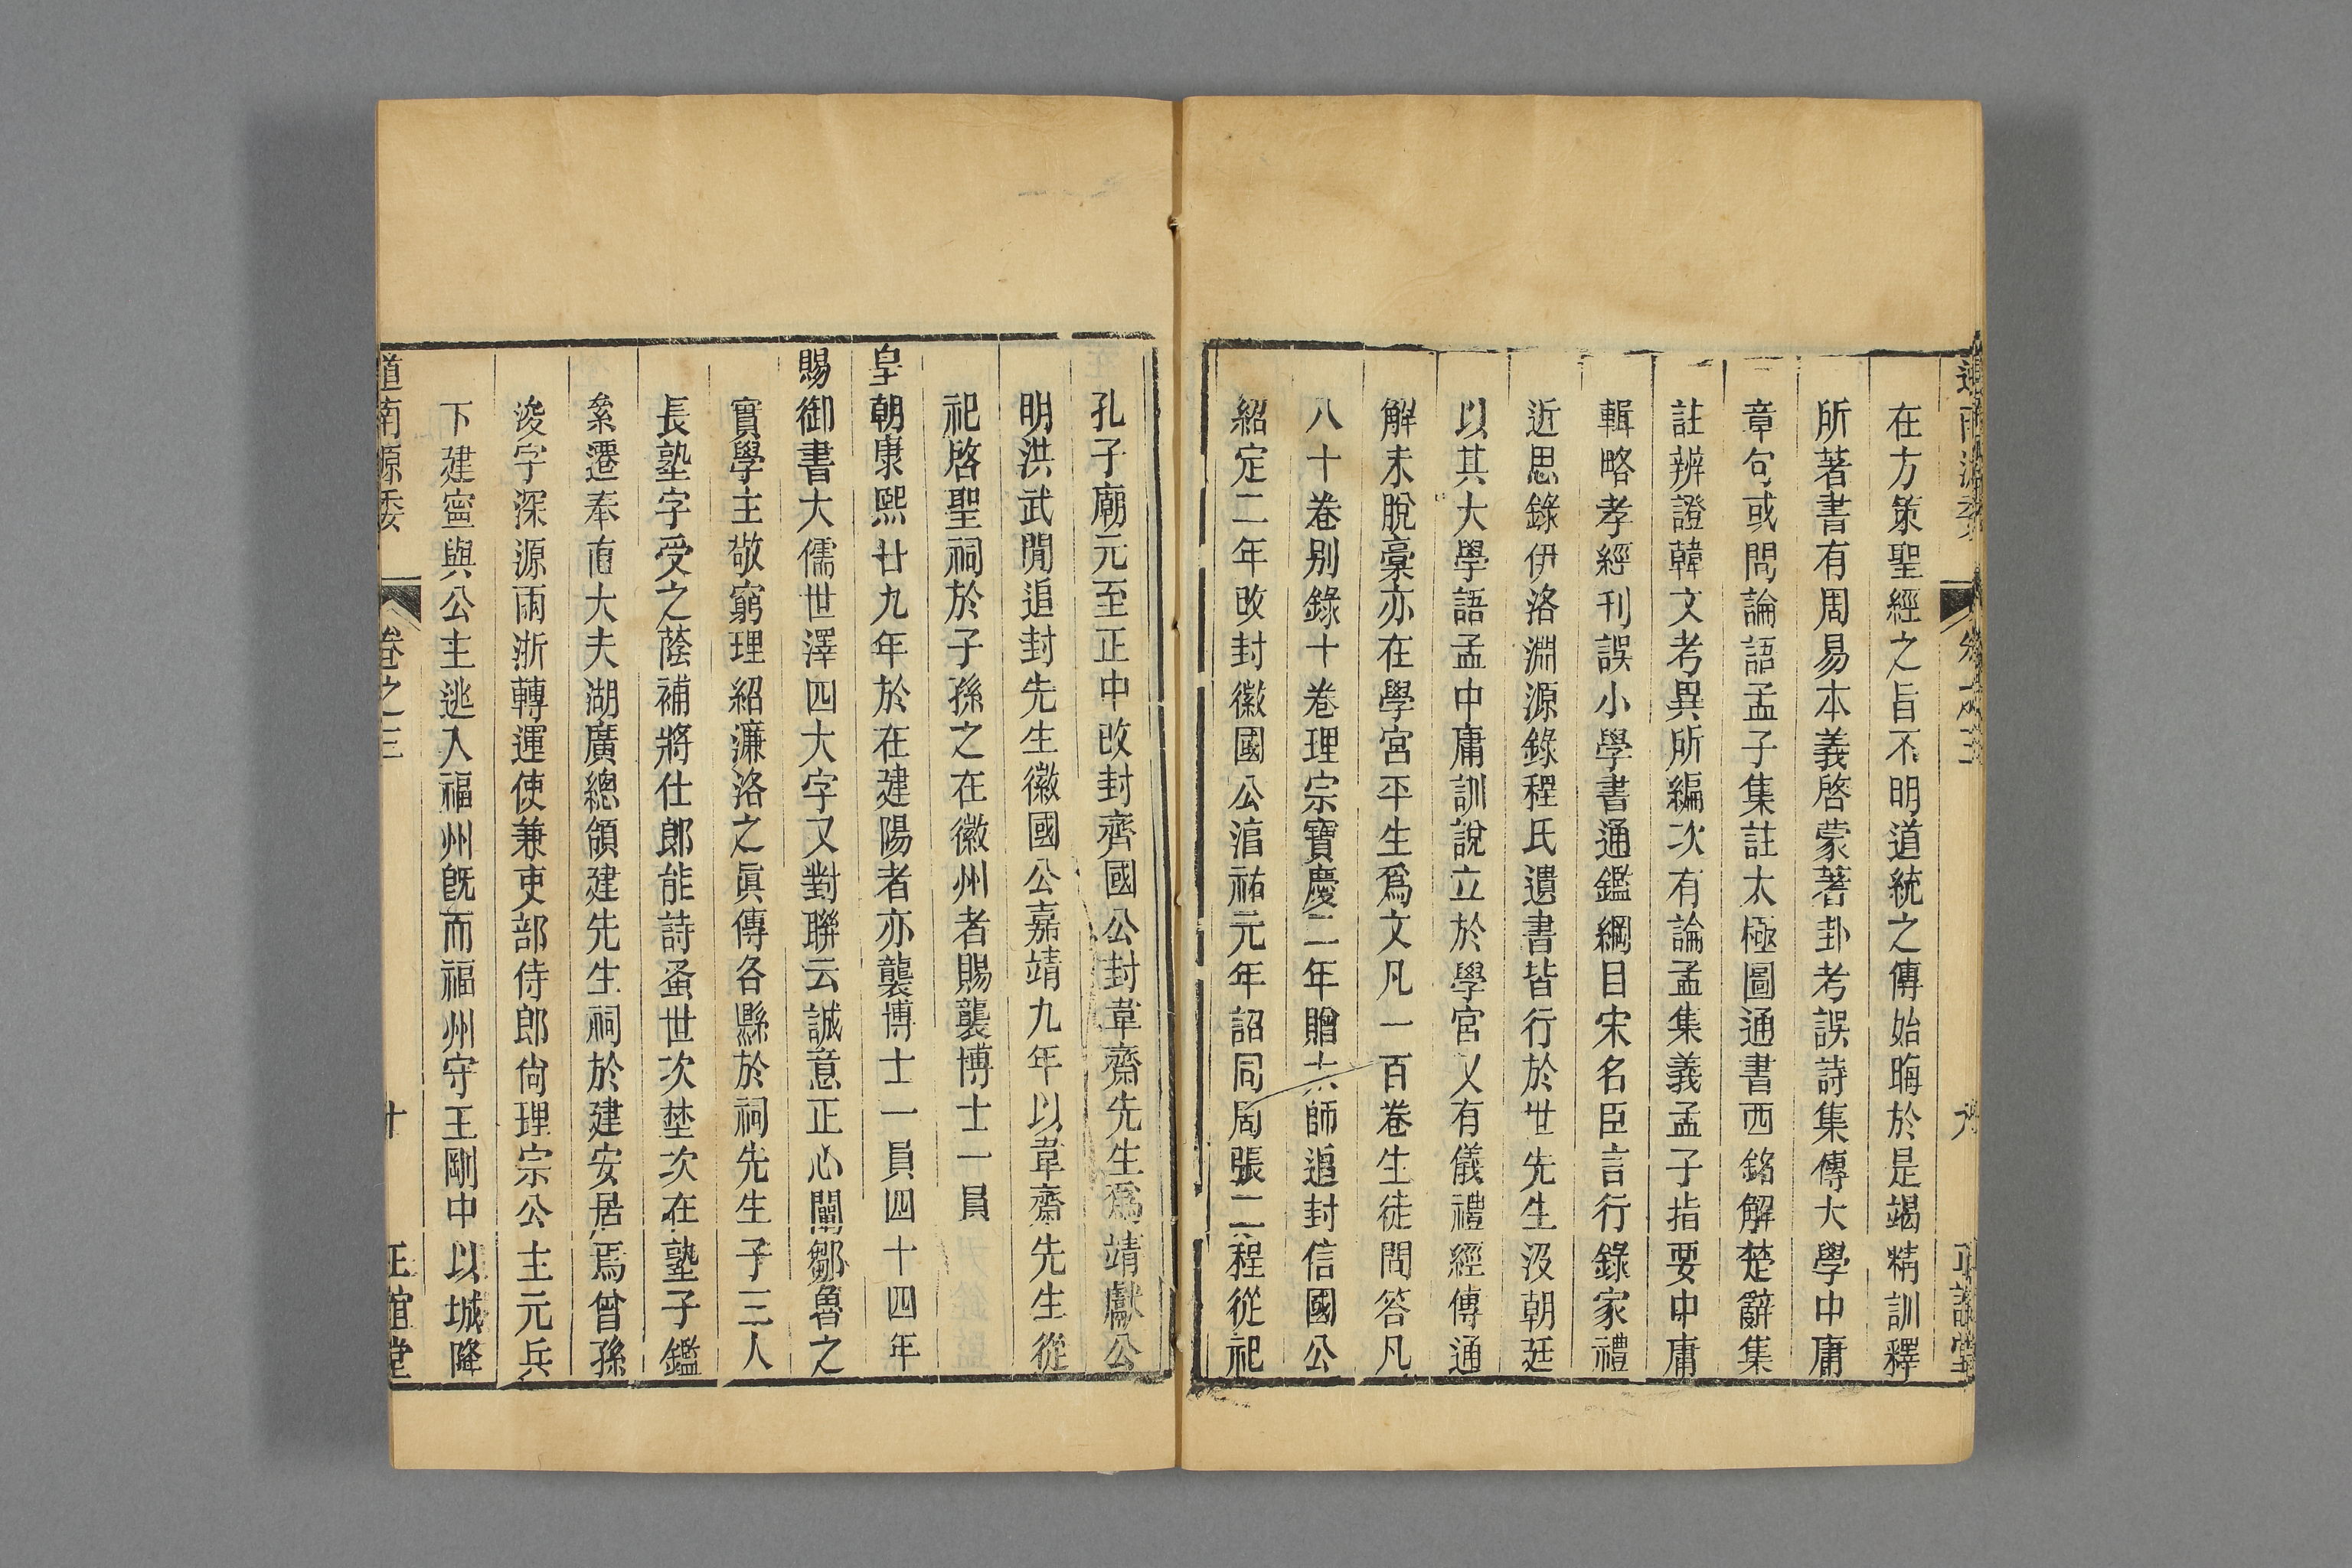 在方策聖經之旨不明道統之傳始晦於是竭精訓釋
所著書有周易本義啓蒙蓍卦考誤詩集傳大學中庸
章句或問論語孟子集註太極圖通書西銘解楚辭集
註辨證韓文考異所編次有論孟集義孟子指要中庸
輯略孝經刊誤小學書通鑑綱目宋名臣言行錄家禮
近思錄伊洛淵源錄程氏遺書皆行於世先生沒朝廷
以其大學語孟中庸訓說立於學宮又有儀禮經傳通
解未脫稾亦在學宮平生爲文凡一百卷生徒問答凡
八十卷別錄十卷理宗寶慶二年贈太師追封信國公
紹定二年改封徽國公淯祐元年詔同周張二程從祀
孔子廟元至正中改封齊國公封韋齋先生爲靖獻公
明洪武閒追封先生徽國公嘉靖九年以韋齋先生從
祀啓聖祠於子孫之在徽州者賜襲博士一員
皇朝康熙廿九年於在建陽者亦襲博士一員四十四年
賜御書大儒世澤四大字又對聯云誠意正心闡鄒魯之
實學主敬窮理紹濂洛之眞傳各縣於祠先生子三人
長塾字受之蔭補將仕郎能詩蚤世次埜次在塾子鑑
絫遷奉直大夫湖廣總領建先生祠於建安居焉曾孫
浚字深源兩浙轉運使兼吏部侍郎尙理宗公主元兵
下建寧與公主逃入福州旣而福州守王剛中以城降
道南源委 卷之三 十 正誼堂